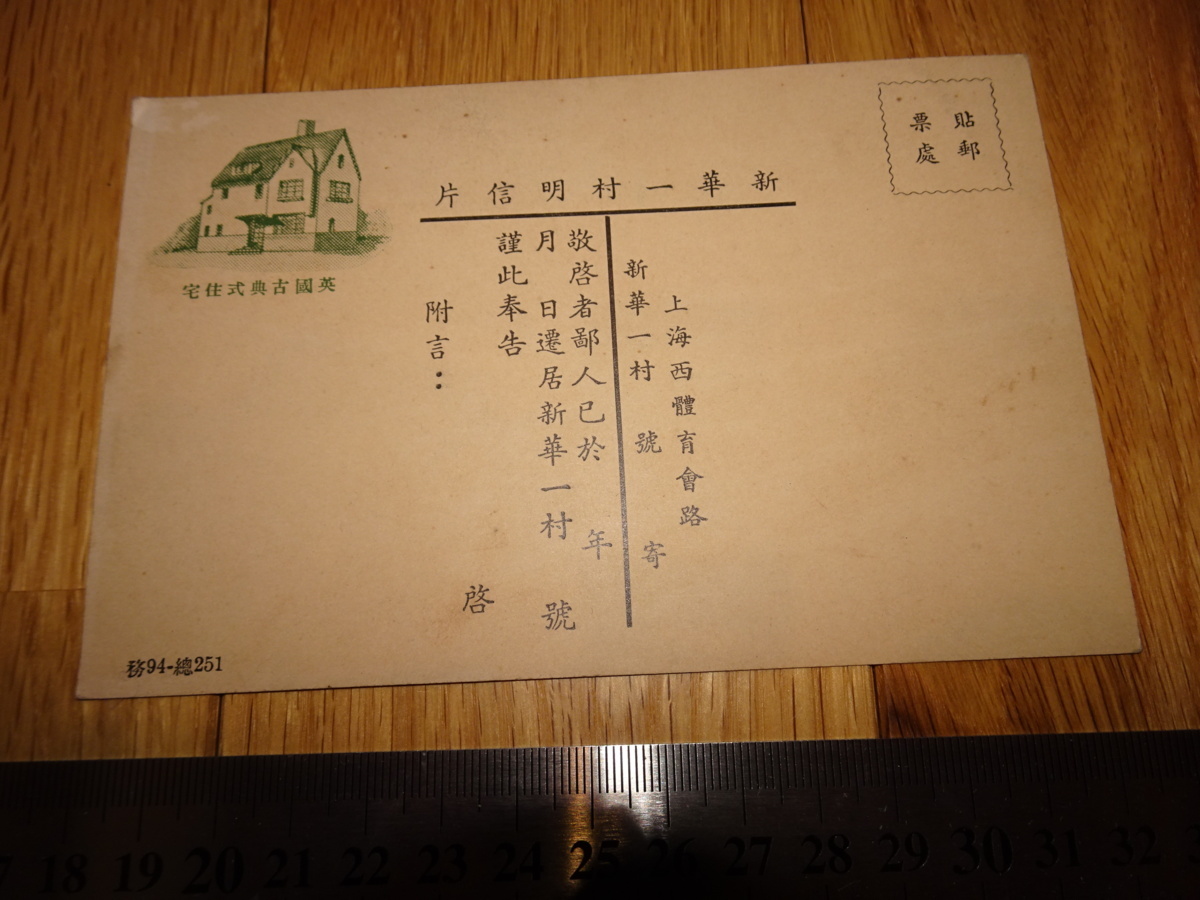 貼郵
票處
新華一村明信片
英國古典式住宅
上海西體育會路
新華一村 號 寄
敬啓者鄙人已於 年
月 日遷居新華一村 號
謹此奉告
啓
附言：
務94-總251
17 18 19 20 21 22 23 24 25 26 27 28 29 30 31 32